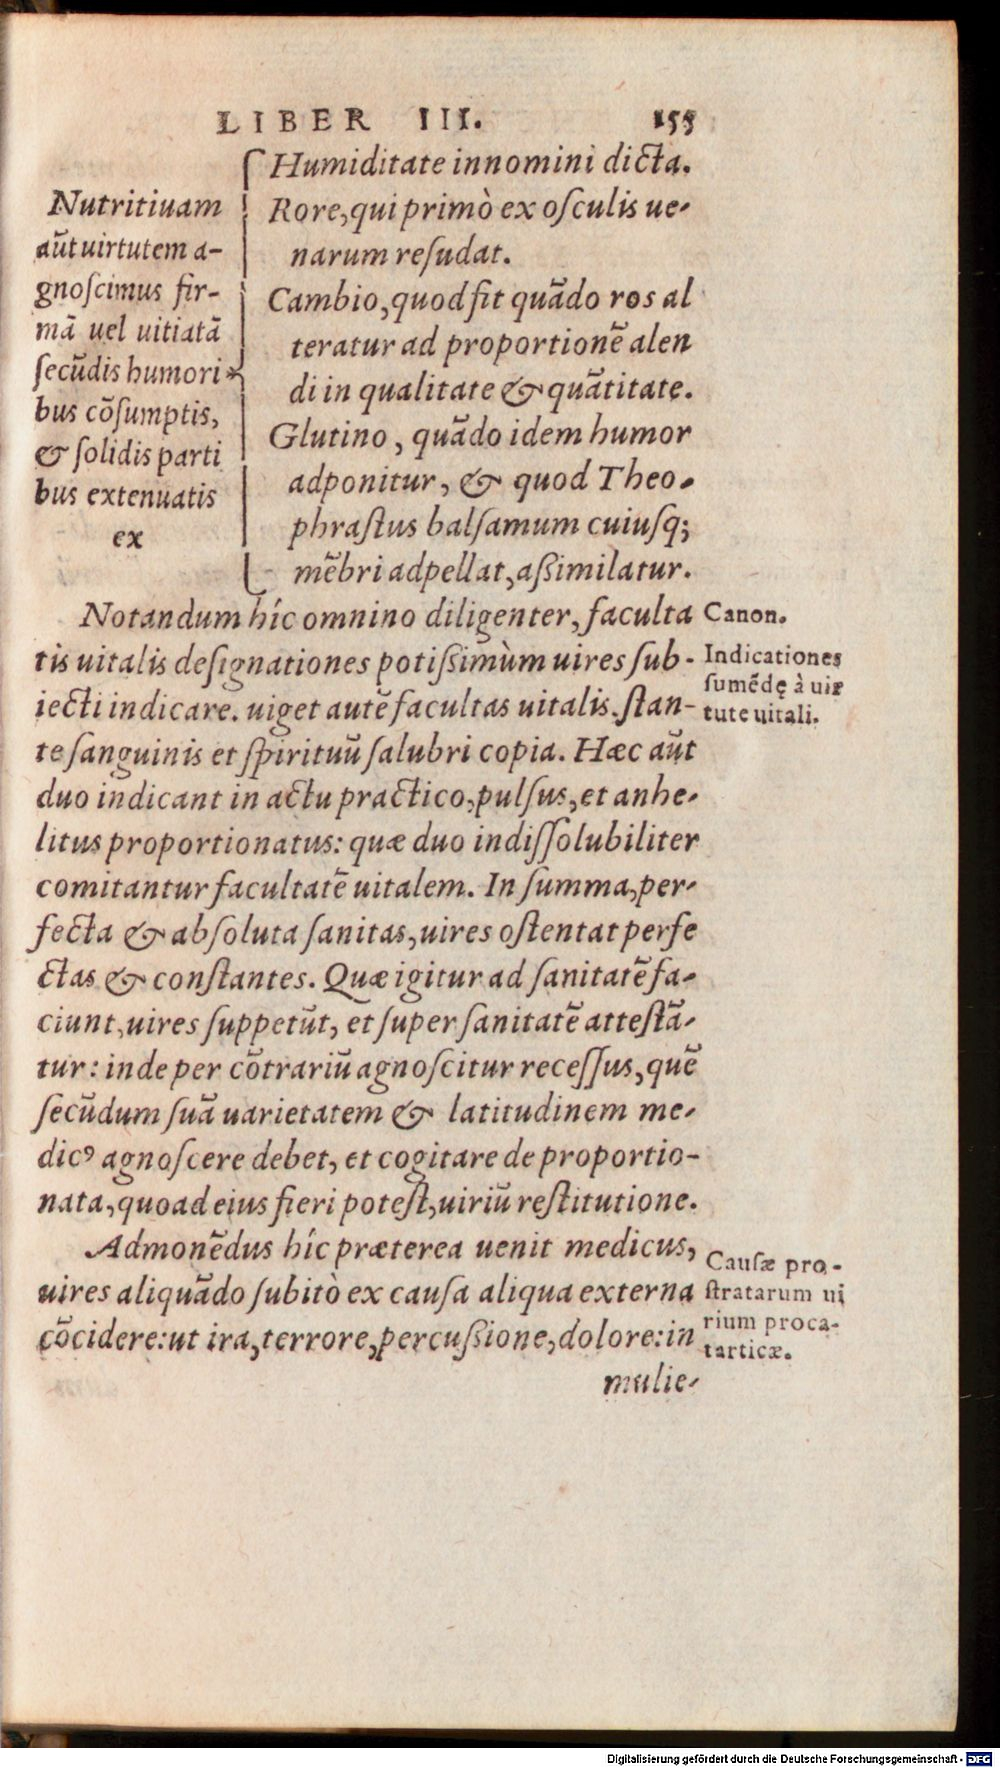 LIBER III. 155
Nutritiuam
aūt uirtutem a-
gnoſcimus fir-
mā uel uitiatā
ſecūdis humori
bus cōſumptis,
& ſolidis parti
bus extenuatis
ex
Humiditate innomini dicta.
Rore, qui primò ex oſculis ue-
narum reſudat.
Cambio, quod fit quādo ros al
teratur ad proportionē alen
di in qualitate & quātitate.
Glutino, quādo idem humor
adponitur, & quod Theo-
phraſtus balſamum cuiuſq;
mēbri adpellat, aßimilatur.
Notandum híc omnino diligenter, faculta
tis uitalis deſignationes potißimùm uires ſub-
iecti indicare. uiget autē facultas uitalis. ſtan-
te ſanguinis et ſpirituū ſalubri copia. Hæc aūt
duo indicant in actu practico, pulſus, et anhe-
litus proportionatus: quæ duo indiſſolubiliter
comitantur facultatē uitalem. In ſumma, per-
fecta & abſoluta ſanitas, uires oſtentat perfe
ctas & conſtantes. Quæ igitur ad ſanitatē fa-
ciunt, uires ſuppetūt, et ſuper ſanitatē atteſtā-
tur: inde per cōtrariū agnoſcitur receſſus, quē
ſecūdum ſuā uarietatem & latitudinem me-
dicꝰ agnoſcere debet, et cogitare de proportio-
nata, quoad eius fieri poteſt, uiriū reſtitutione.
Admonēdus híc præterea uenit medicus,
uires aliquādo ſubitò ex cauſa aliqua externa
cōcidere: ut ira, terrore, percußione, dolore: in
mulie-
Canon.
Indicationes
ſumēdę à uir
tute uitali.
Cauſæ pro-
ſtratarum ui
rium proca-
tarticæ.
Digitalisierung gefördert durch die Deutsche Forschungsgemeinschaft - DFG